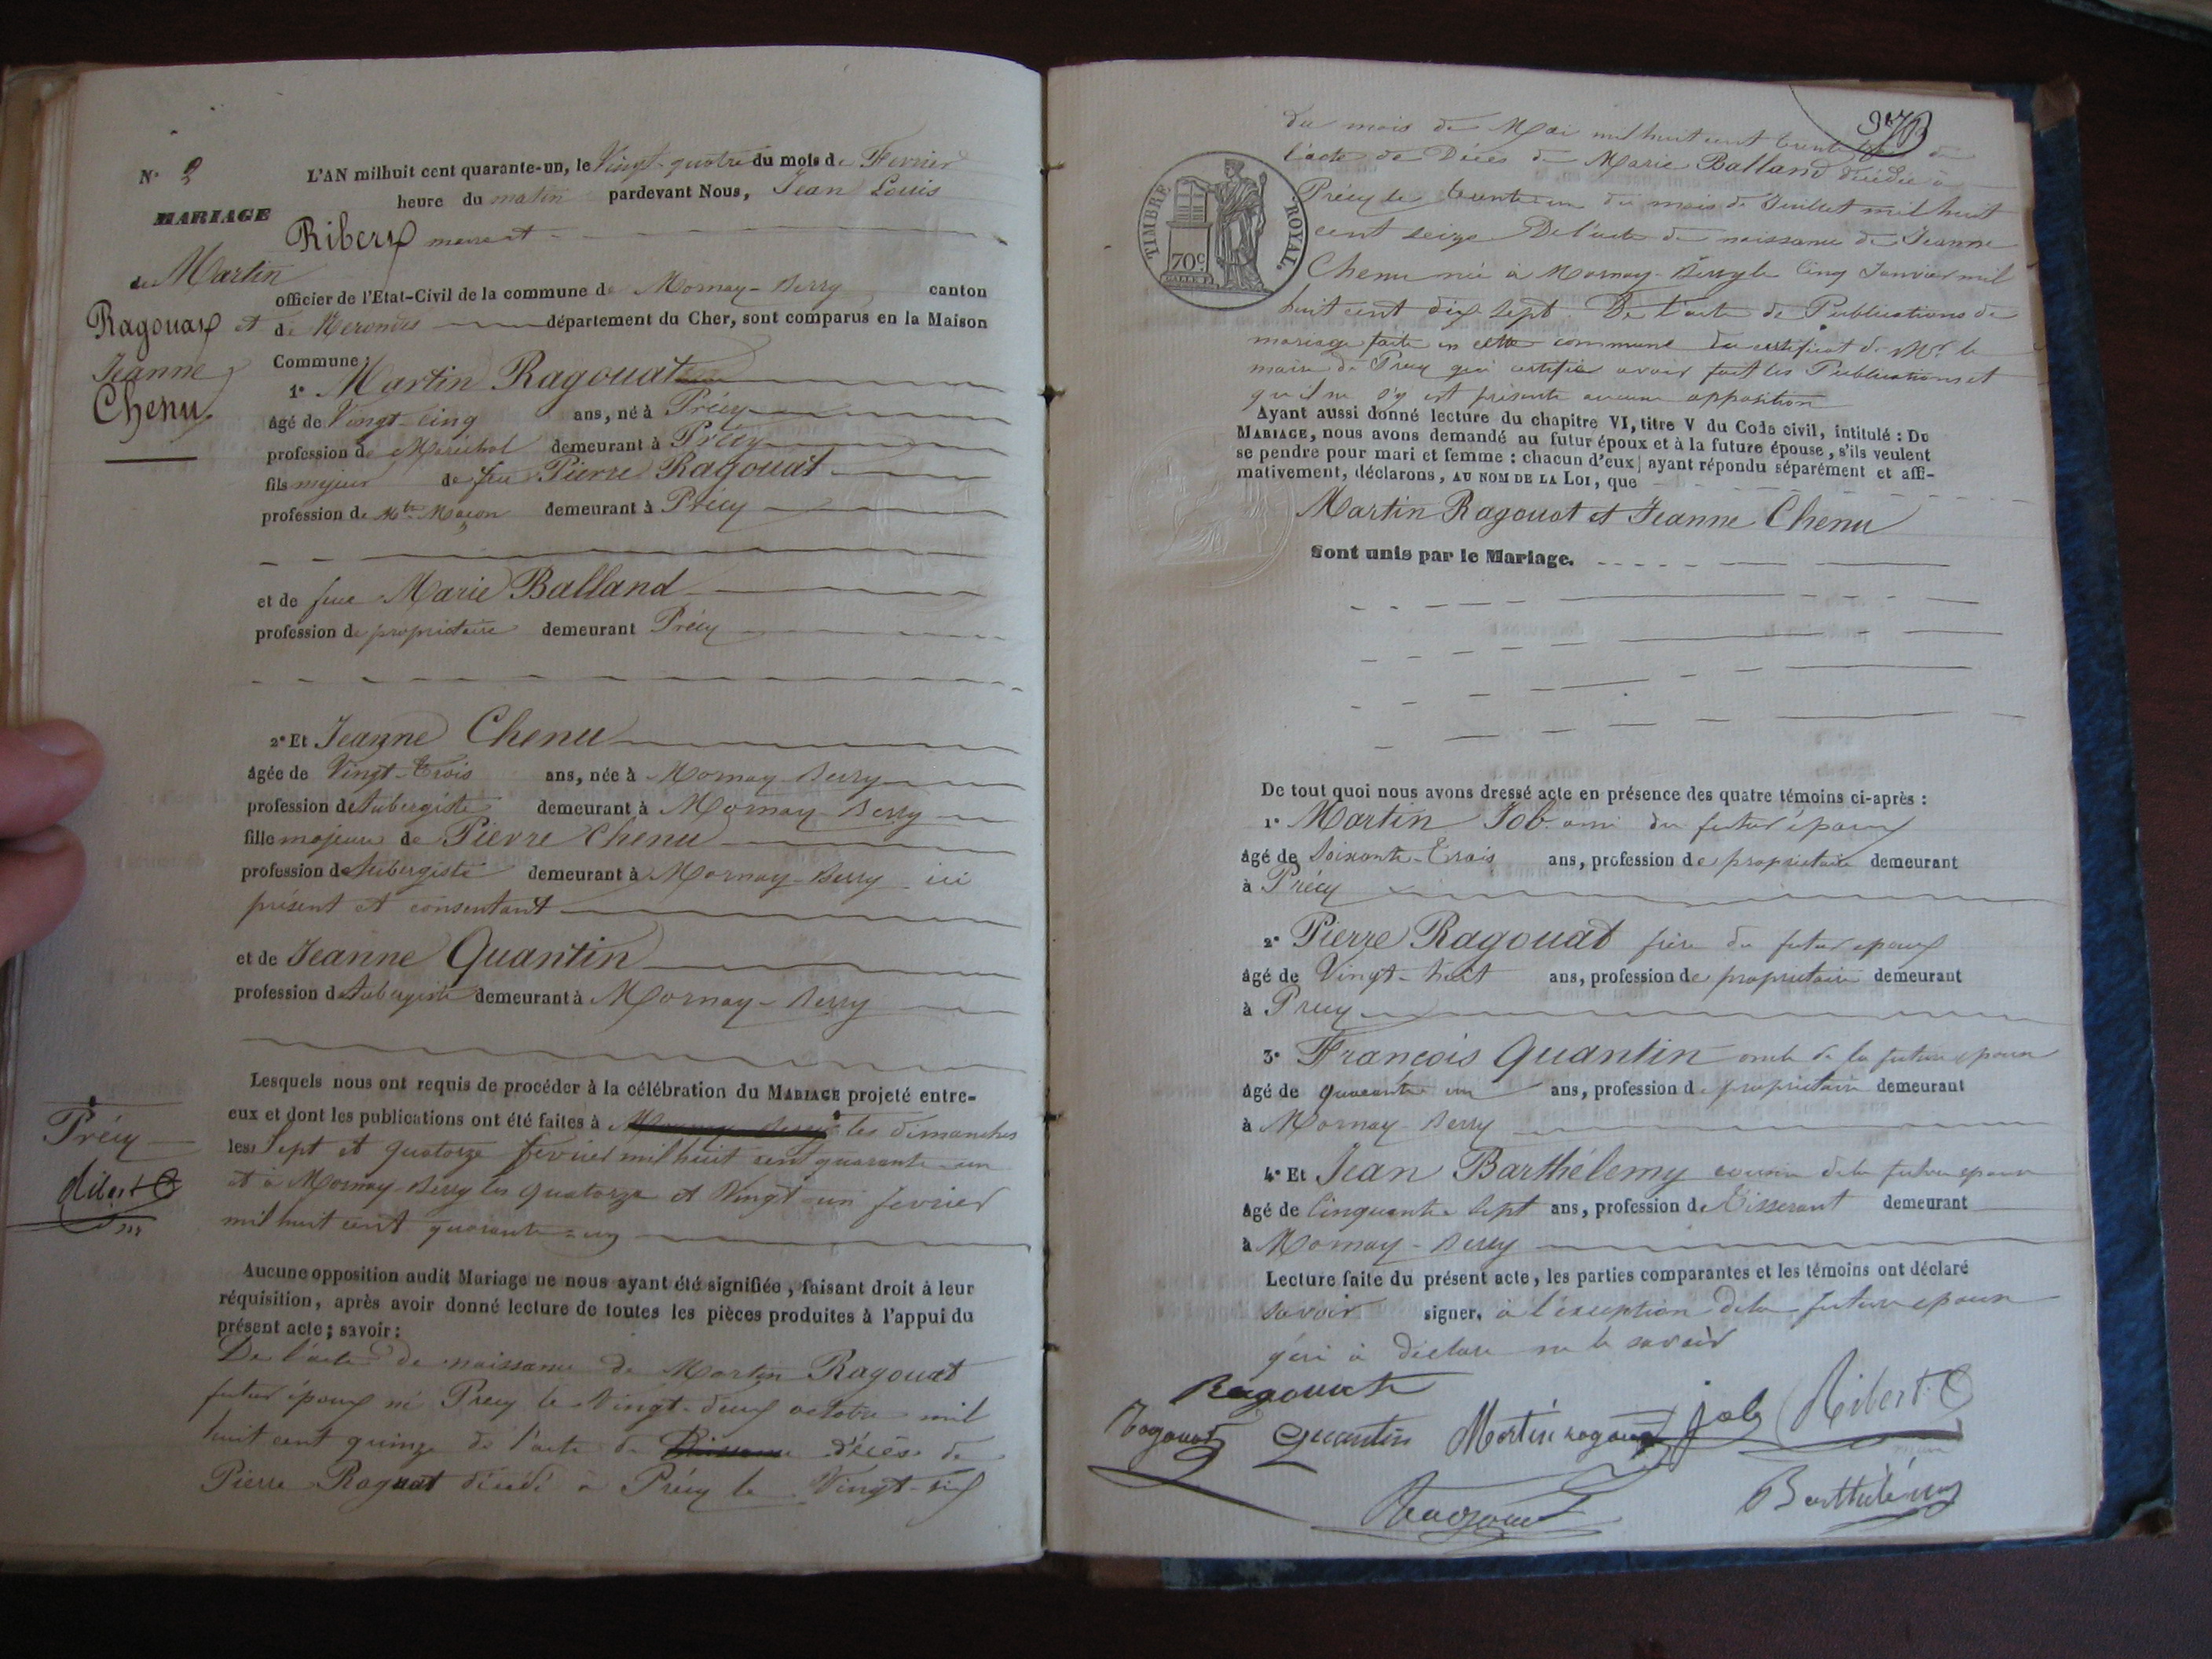 N° 3
MARIAGE
de Martin
Ragouat et
Jeanne
Chenu
L'AN milhuit cent quarante-un, le Vingt-quatre du mois de Fevrier
heure du matin pardevant Nous, Jean Louis
Ribert maire et
officier de l'Etat-Civil de la commune de Mornay-Berry canton
de Nerondes département du Cher, sont comparus en la Maison
Commune:
1° Martin Ragouat
âgé de Vingt-Cinq ans, né à Précy
profession de Maréchal demeurant à Précy
fils majeur de feu Pierre Ragouat
profession de Mtre Maçon demeurant à Précy
et de feue Marie Balland
profession de propriétaire demeurant Précy
2° Et Jeanne Chenu
âgée de Vingt-Trois ans, née à Mornay-Berry
profession d'Aubergiste demeurant à Mornay-Berry
fille majeure de Pierre Chenu
profession d'Aubergiste demeurant à Mornay-Berry ici
présent et consentant
et de Jeanne Quantin
profession d'Aubergiste demeurant à Mornay-Berry
Lesquels nous ont requis de procéder à la célébration du MARIAGE projeté entre-
eux et dont les publications ont été faites à les dimanches
les Sept et quatorze fevrier mil huit cent quarante-un
et à Mornay-Berry les quatorze et Vingt-un fevrier
mil huit cent quarante-un
Précy
Ribert
Aucune opposition audit Mariage ne nous ayant été signifiée, faisant droit à leur
réquisition, après avoir donné lecture de toutes les pièces produites à l'appui du
présent acte; savoir:
De l'acte de naissance de Martin Ragouat
futur époux né Precy le Vingt-deux octobre mil
huit cent quinze de l'acte de décès de
Pierre Ragouat décédé à Précy le Vingt-six
373
du mois de Mai mil huit cent trente de
l'acte de Décès de Marie Balland décédée à
Précy le trente-un du mois de Juillet mil huit
cent seize De l'acte de naissance de Jeanne
Chenu née à Mornay-Berry le Cinq Janvier mil
huit cent dix-Sept. De l'acte de Publications de
mariage faite en cette commune du certificat de Mr le
maire de Precy qui certifie avoir fait les Publications et
qu'il ne s'y est présenté aucune opposition
TIMBRE ROYAL.
70c
Ayant aussi donné lecture du chapitre VI, titre V du Code civil, intitulé: DU
MARIAGE, nous avons demandé au futur époux et à la future épouse, s'ils veulent
se pendre pour mari et femme: chacun d'eux ayant répondu séparément et affi-
mativement, déclarons, AU NOM DE LA LOI, que
Martin Ragouat et Jeanne Chenu
Sont unis par le Mariage.
De tout quoi nous avons dressé acte en présence des quatre témoins ci-après:
1° Martin Job ami du futur époux
âgé de Soixante-Trois ans, profession de propriétaire demeurant
à Précy
2° Pierre Ragouat frère du futur epoux
âgé de Vingt-huit ans, profession de propriétaire demeurant
à Precy
3° François Quantin oncle de la future epouse
âgé de quarante un ans, profession de propriétaire demeurant
à Mornay-Berry
4° Et Jean Barthélemy cousin de la future epouse
âgé de Cinquante Sept ans, profession de Tisserant demeurant
à Mornay-Berry
Lecture faite du présent acte, les parties comparantes et les témoins ont déclaré
savoir signer, à l'exception de la future epouse
qui a déclaré ne le savoir
Ragouat
Ragouat Quantin Martin ragouat job Ribert
Ragouat Barthélémy